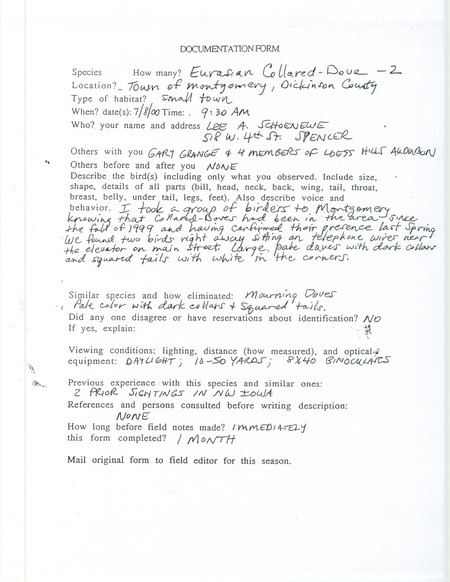 DOCUMENTATION FORM
Species How many? Eurasian Collared-Dove - 2
Location? Town of Montgomery, Dickinson County
Type of habitat? small town
When? date(s): 7/8/00 Time: . 9:30 AM
Who? your name and address LEE A. SCHOENEWE
518 W. 4th St. SPENCER
Others with you GARY GRANGE & 4 MEMBERS OF LOESS HILLS AUDUBON
Others before and after you NONE
Describe the bird(s) including only what you observed. Include size,
shape, details of all parts (bill, head, neck, back, wing, tail, throat,
breast, belly, under tail, legs, feet). Also describe voice and
behavior. I took a group of birders to Montgomery
knowing that Collared-Doves had been in the area since
the fall of 1999 and having confirmed their presence last spring
We found two birds right away sitting on telephone wires near
the elevator on main street. Large, pale doves with dark collars
and squared tails with white in the corners.
Similar species and how eliminated: Mourning Doves
Pale color with dark collars & squared tails.
Did any one disagree or have reservations about identification? NO
If yes, explain:
Viewing conditions: lighting, distance (how measured), and optical
equipment: DAYLIGHT; 10-50 YARDS; 8X40 BINOCULARS
Previous experience with this species and similar ones:
2 PRIOR SIGHTINGS IN NW IOWA
References and persons consulted before writing description:
NONE
How long before field notes made? IMMEDIATELY
this form completed? 1 MONTH
Mail original form to field editor for this season.